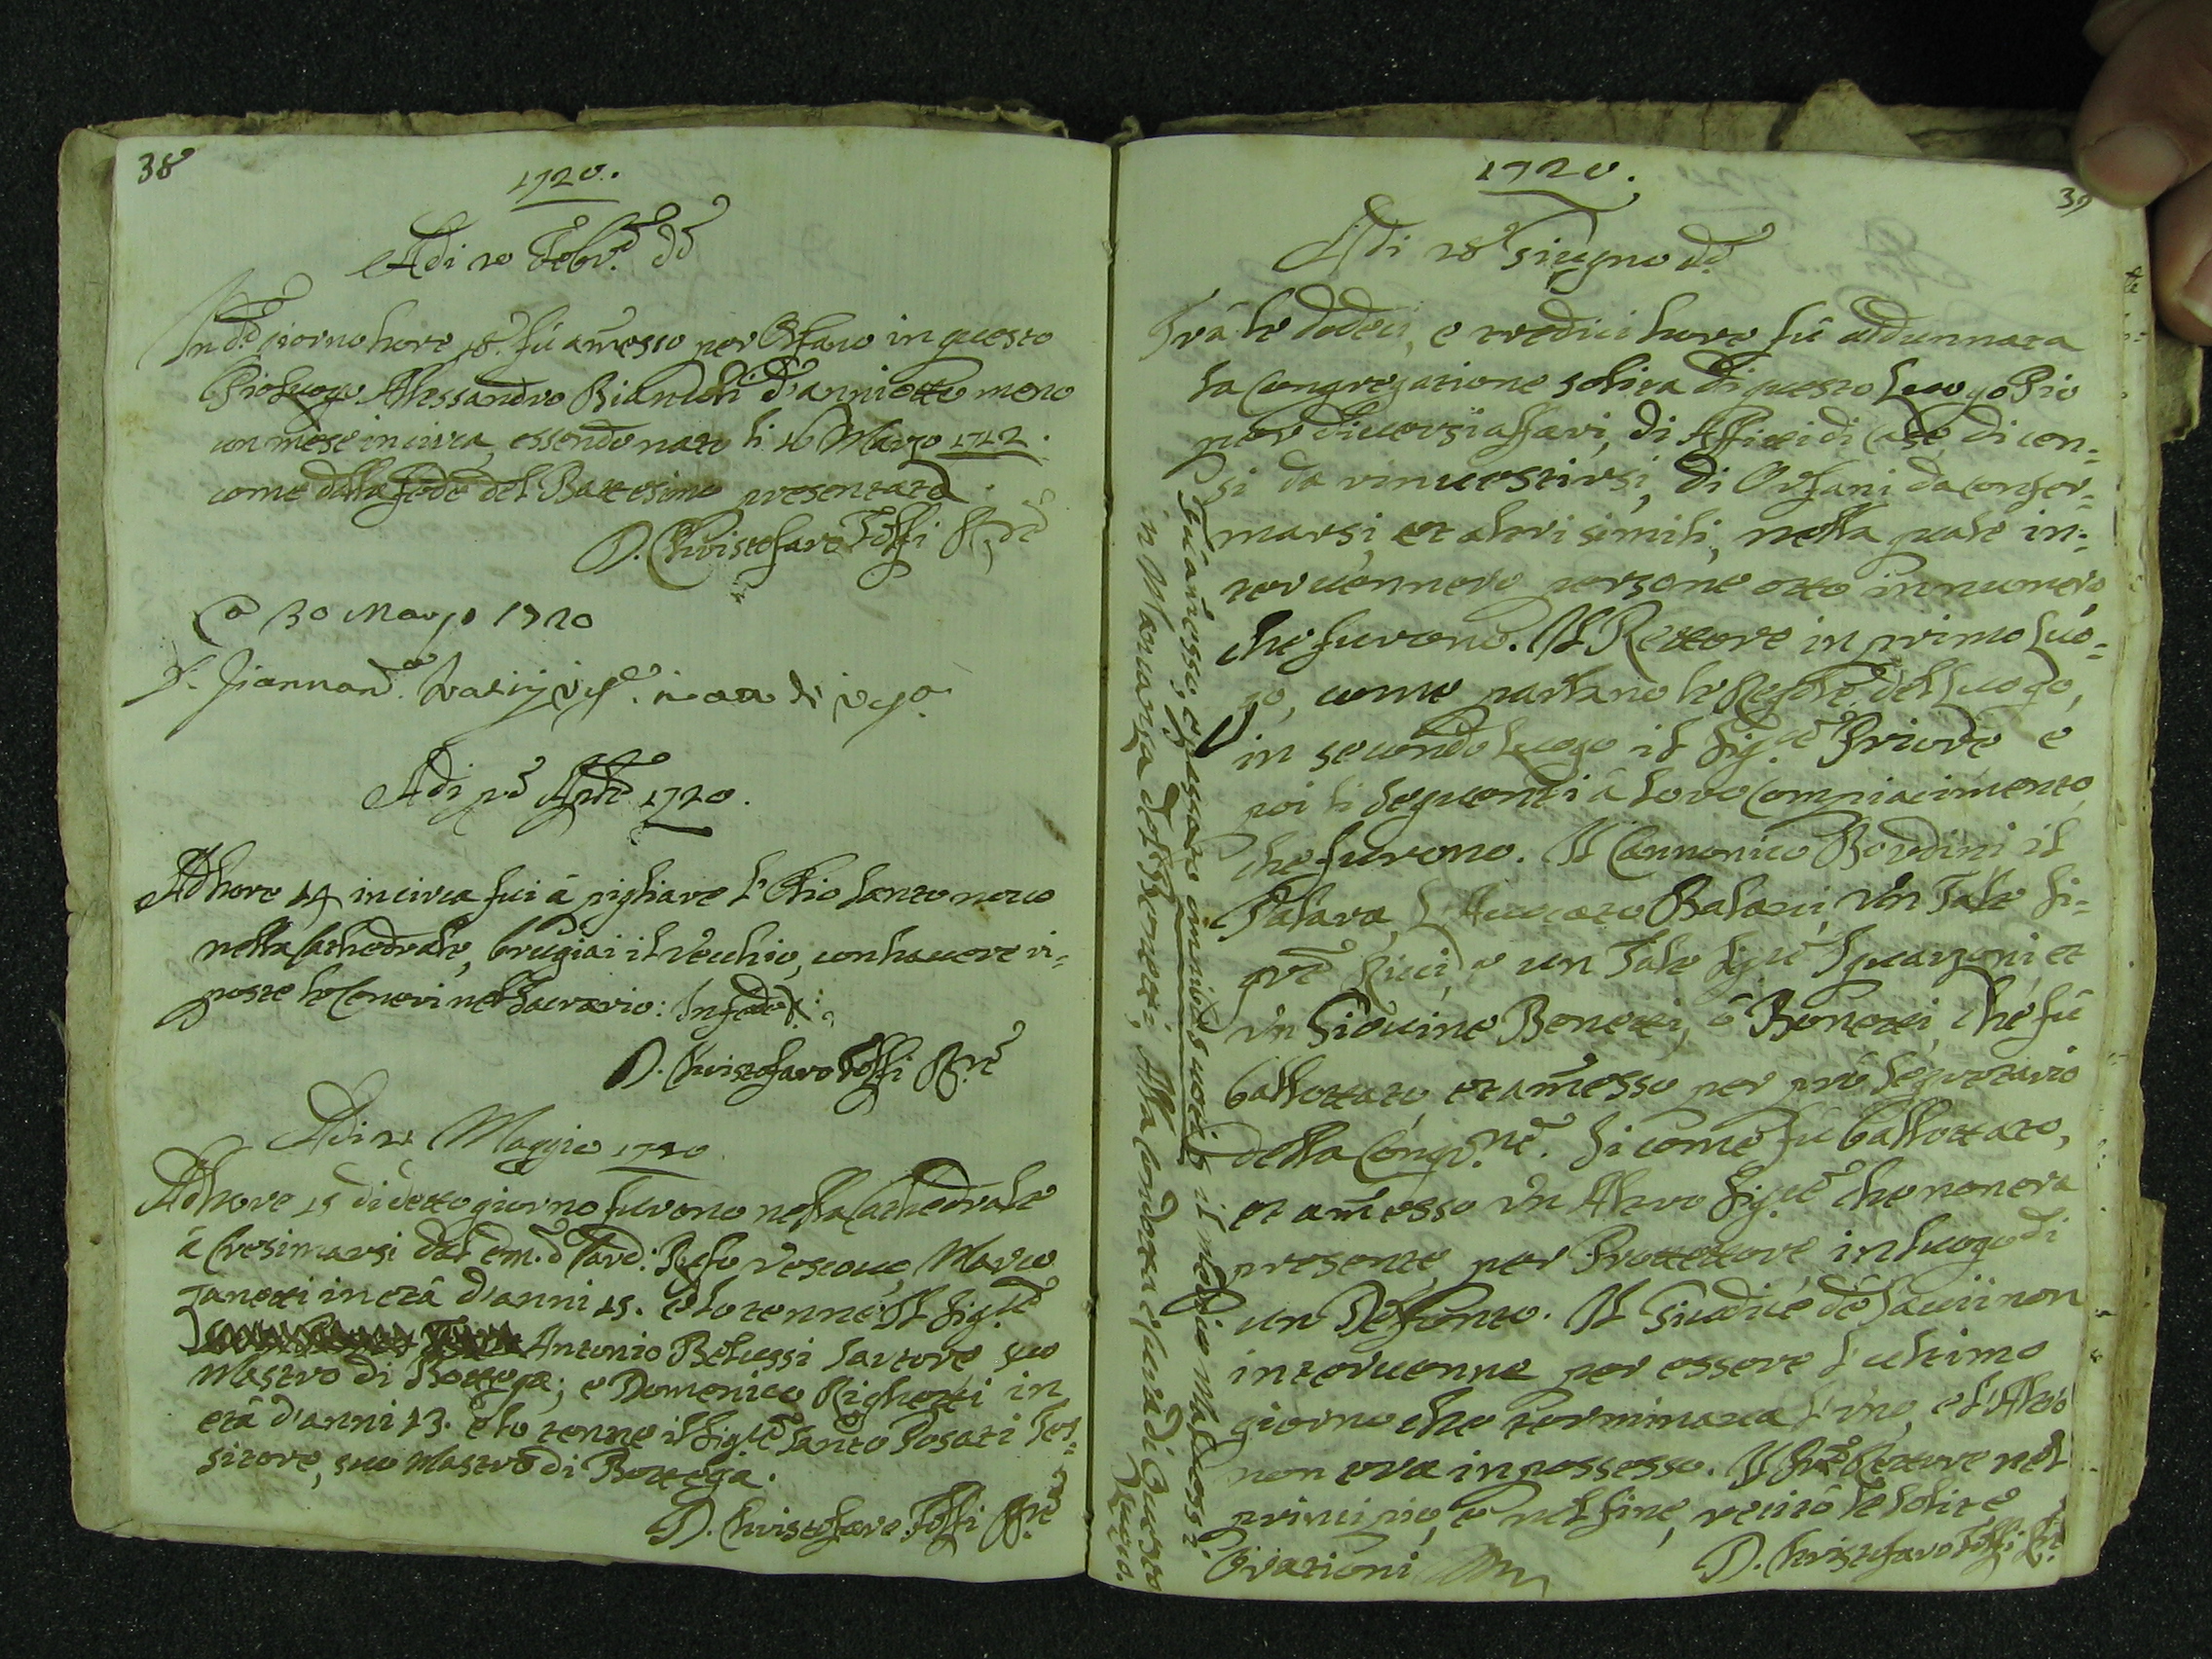 38
1720.
Adi 20 Febr.º dº
In dº giorno hore 18. fù amesso per Orfano in questo
Pio Luogo Alessandro Bianchi d'anni otto meno
un mese in circa, essendo nato li 16 Marzo 1712.
come dalla fede del Battesimo presentata.
D. Christofaro Toffi Rre
30 Marzo 1720
Adi pº Aprle 1720.
Ad hore 14 in circa fui à pigliare l'Olio Santo novo
nella Cathedrale, brugiai il Vecchio, con havere ri=
poste le Ceneri nel Sacrario: In fede
D. Christofaro Toffi Rre
Adi 21 Maggio 1720
Ad hore 15 di detto giorno furono nella Cathedrale
à Cresimarsi dal Em.º Card. Ruffo Vescovo, Marco
Zanetti in età d'anni 15. e lo tenne Il Sig.re
Antonio Belussi Sartore suo
Mastro di Bottega; e Domenico Righetti in
età d'anni 13. e lo tenne il Sig.re Santo Rosati Tes=
sitore, suo Mastro di Bottega.
D. Christofaro Toffi Rre
1720.
39
Adi 28 Giugno dº
Trà le dodeci, e tredici hore fù addunnata
la Congregatione solita di questo Luogo Pio
per diversi affari, di Affitti di Case, di cen=
si da rinvestirsi, di Orfani da confer=
marsi, et altri simili, nella quale in=
tervennero persone otto in numero,
che furono. Il Rettore in primo luo=
go, come parlano le Regole del Luogo,
in secondo Luogo il Sig.re Priore e
poi li seguenti à loro Compiacimento,
che furono. Il Cannonico Bordini il
L'Avvocato Un Tale Si=
gre e un Tale Sig.re Sguarzoni et
Un Giovine Benetti, ò Bonetti, che fù
ballottato, et amesso per prò Segretario
della Congr.ne. Si come fù ballottato,
et amesso Un Altro Sig.re che non era
presente, per Prottettore, in luogo di
un Defonto. Il Giudice de Savii non
intervenne per essere l'ultimo
giorno che terminava l'uno, e l'Altro
non era in possesso. Il Rettore nel
principio, e nel fine, recitò le solite
Orationi
D. Christofaro Toffi Rre
Fù amesso, e passato il Medico Malrossi.
in Mancanza del Benetti, Alla Condotta e cura di Questo
Luoco.